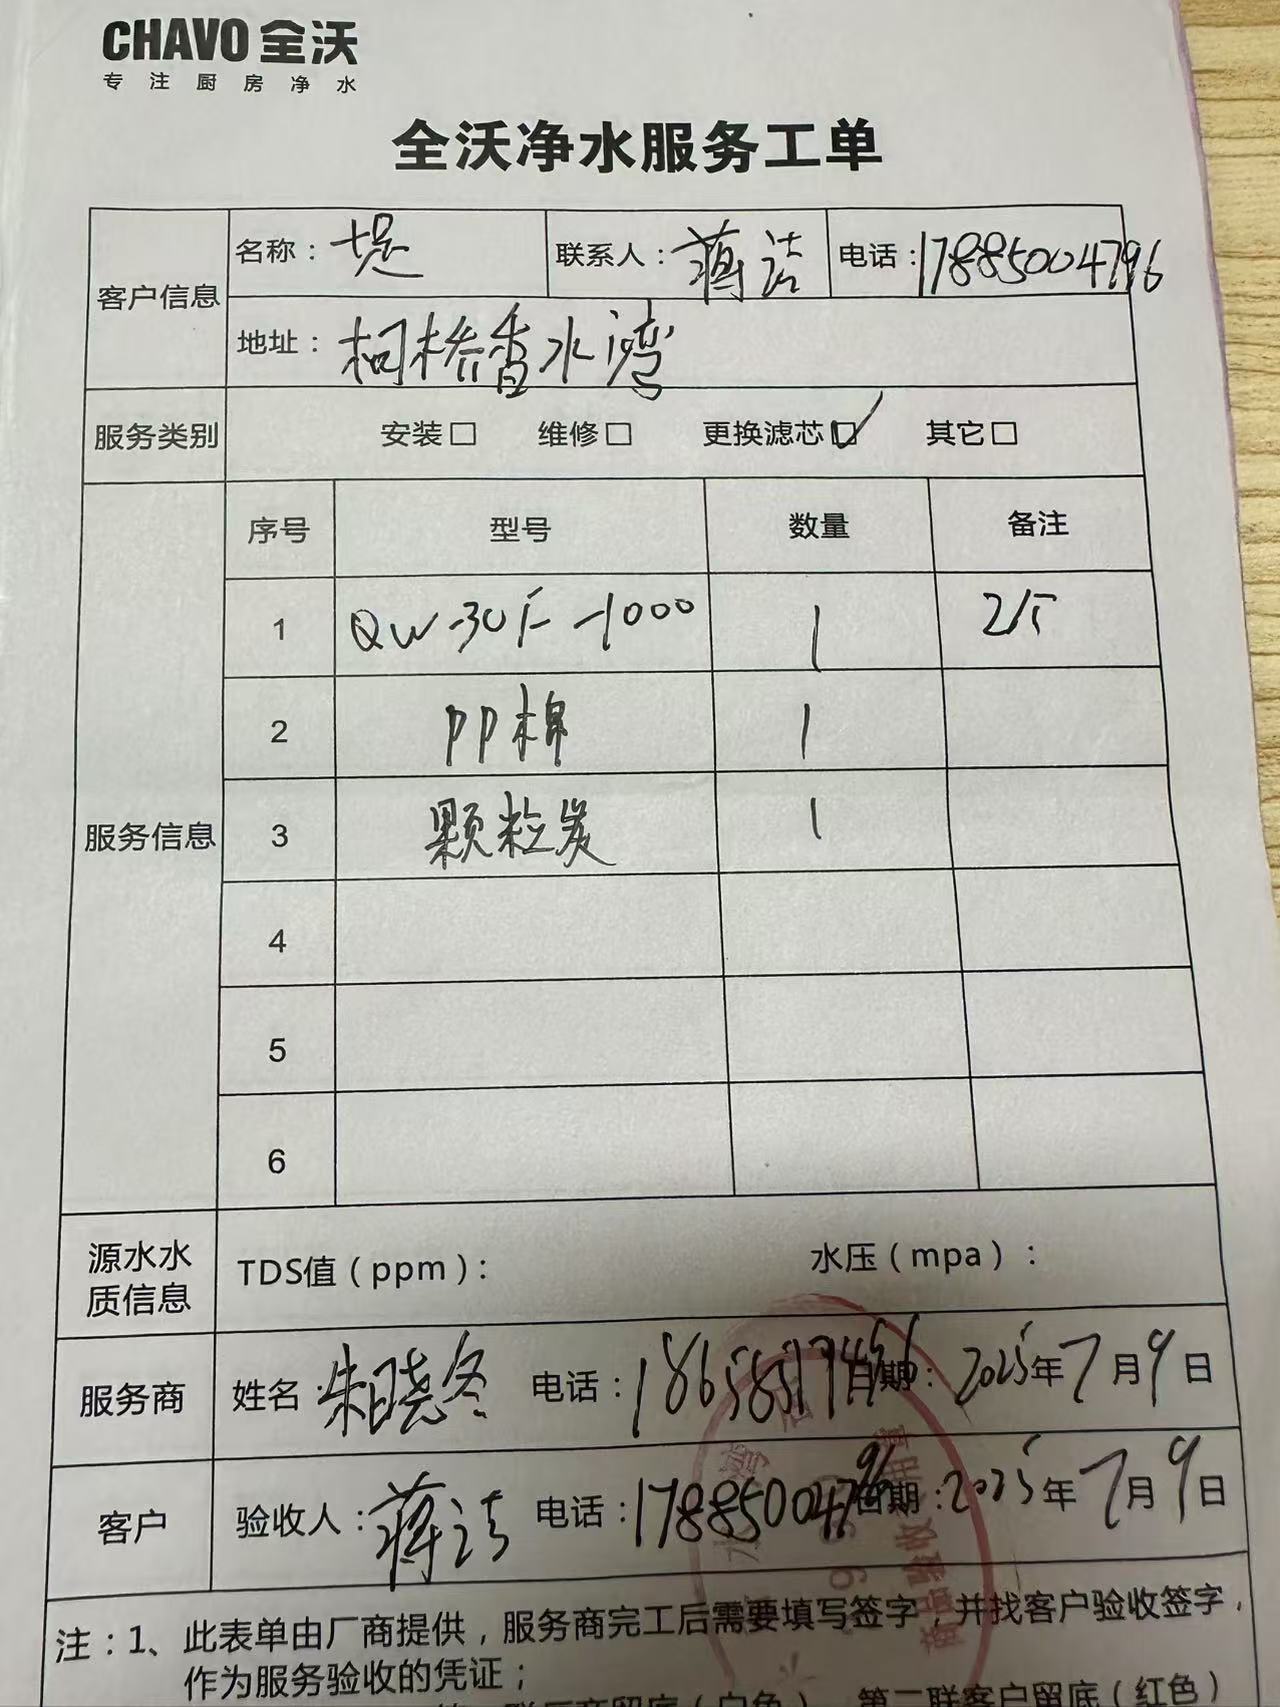 CHAVO 全沃
专注厨房净水
全沃净水服务工单
客户信息 名称：堤 联系人：蒋洁 电话：17885004796
地址：柯桥香水湾
服务类别 安装□ 维修□ 更换滤芯☑ 其它□
服务信息 序号 型号 数量 备注
1 QW-30F-1000 1
2 PP棉 1
3 颗粒炭 1
4
5
6
源水水质信息 TDS值（ppm）： 水压（mpa）：
服务商 姓名：朱晓冬 电话： 日期：2025年7月9日
客户 验收人：蒋洁 电话：17885004796 日期：2025年7月9日
注：1、此表单由厂商提供，服务商完工后需要填写签字，并找客户验收签字，
作为服务验收的凭证；
第二联客户留底（红色）